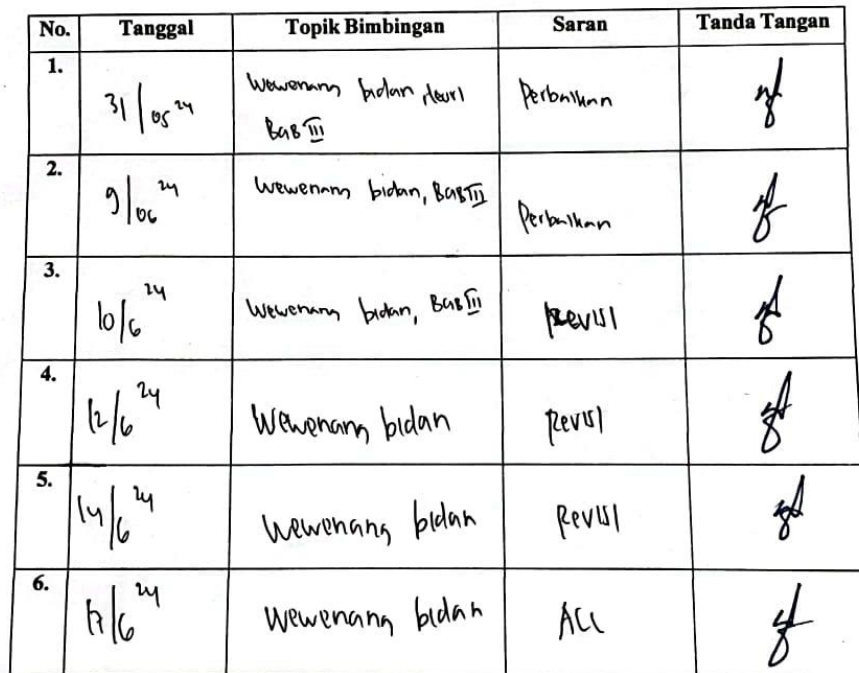 No. Tanggal Topik Bimbingan Saran Tanda Tangan
1. 31/05 24 Wewenang bidan, Perbaikan
BAB III
2. 9/06 24 Wewenang bidan, BAB III Perbaikan
3. 10/6 24 Wewenang bidan, BAB III Revisi
4. 12/6 24 Wewenang bidan Revisi
5. 14/6 24 Wewenang bidan Revisi
6. 17/6 24 Wewenang bidan ACC